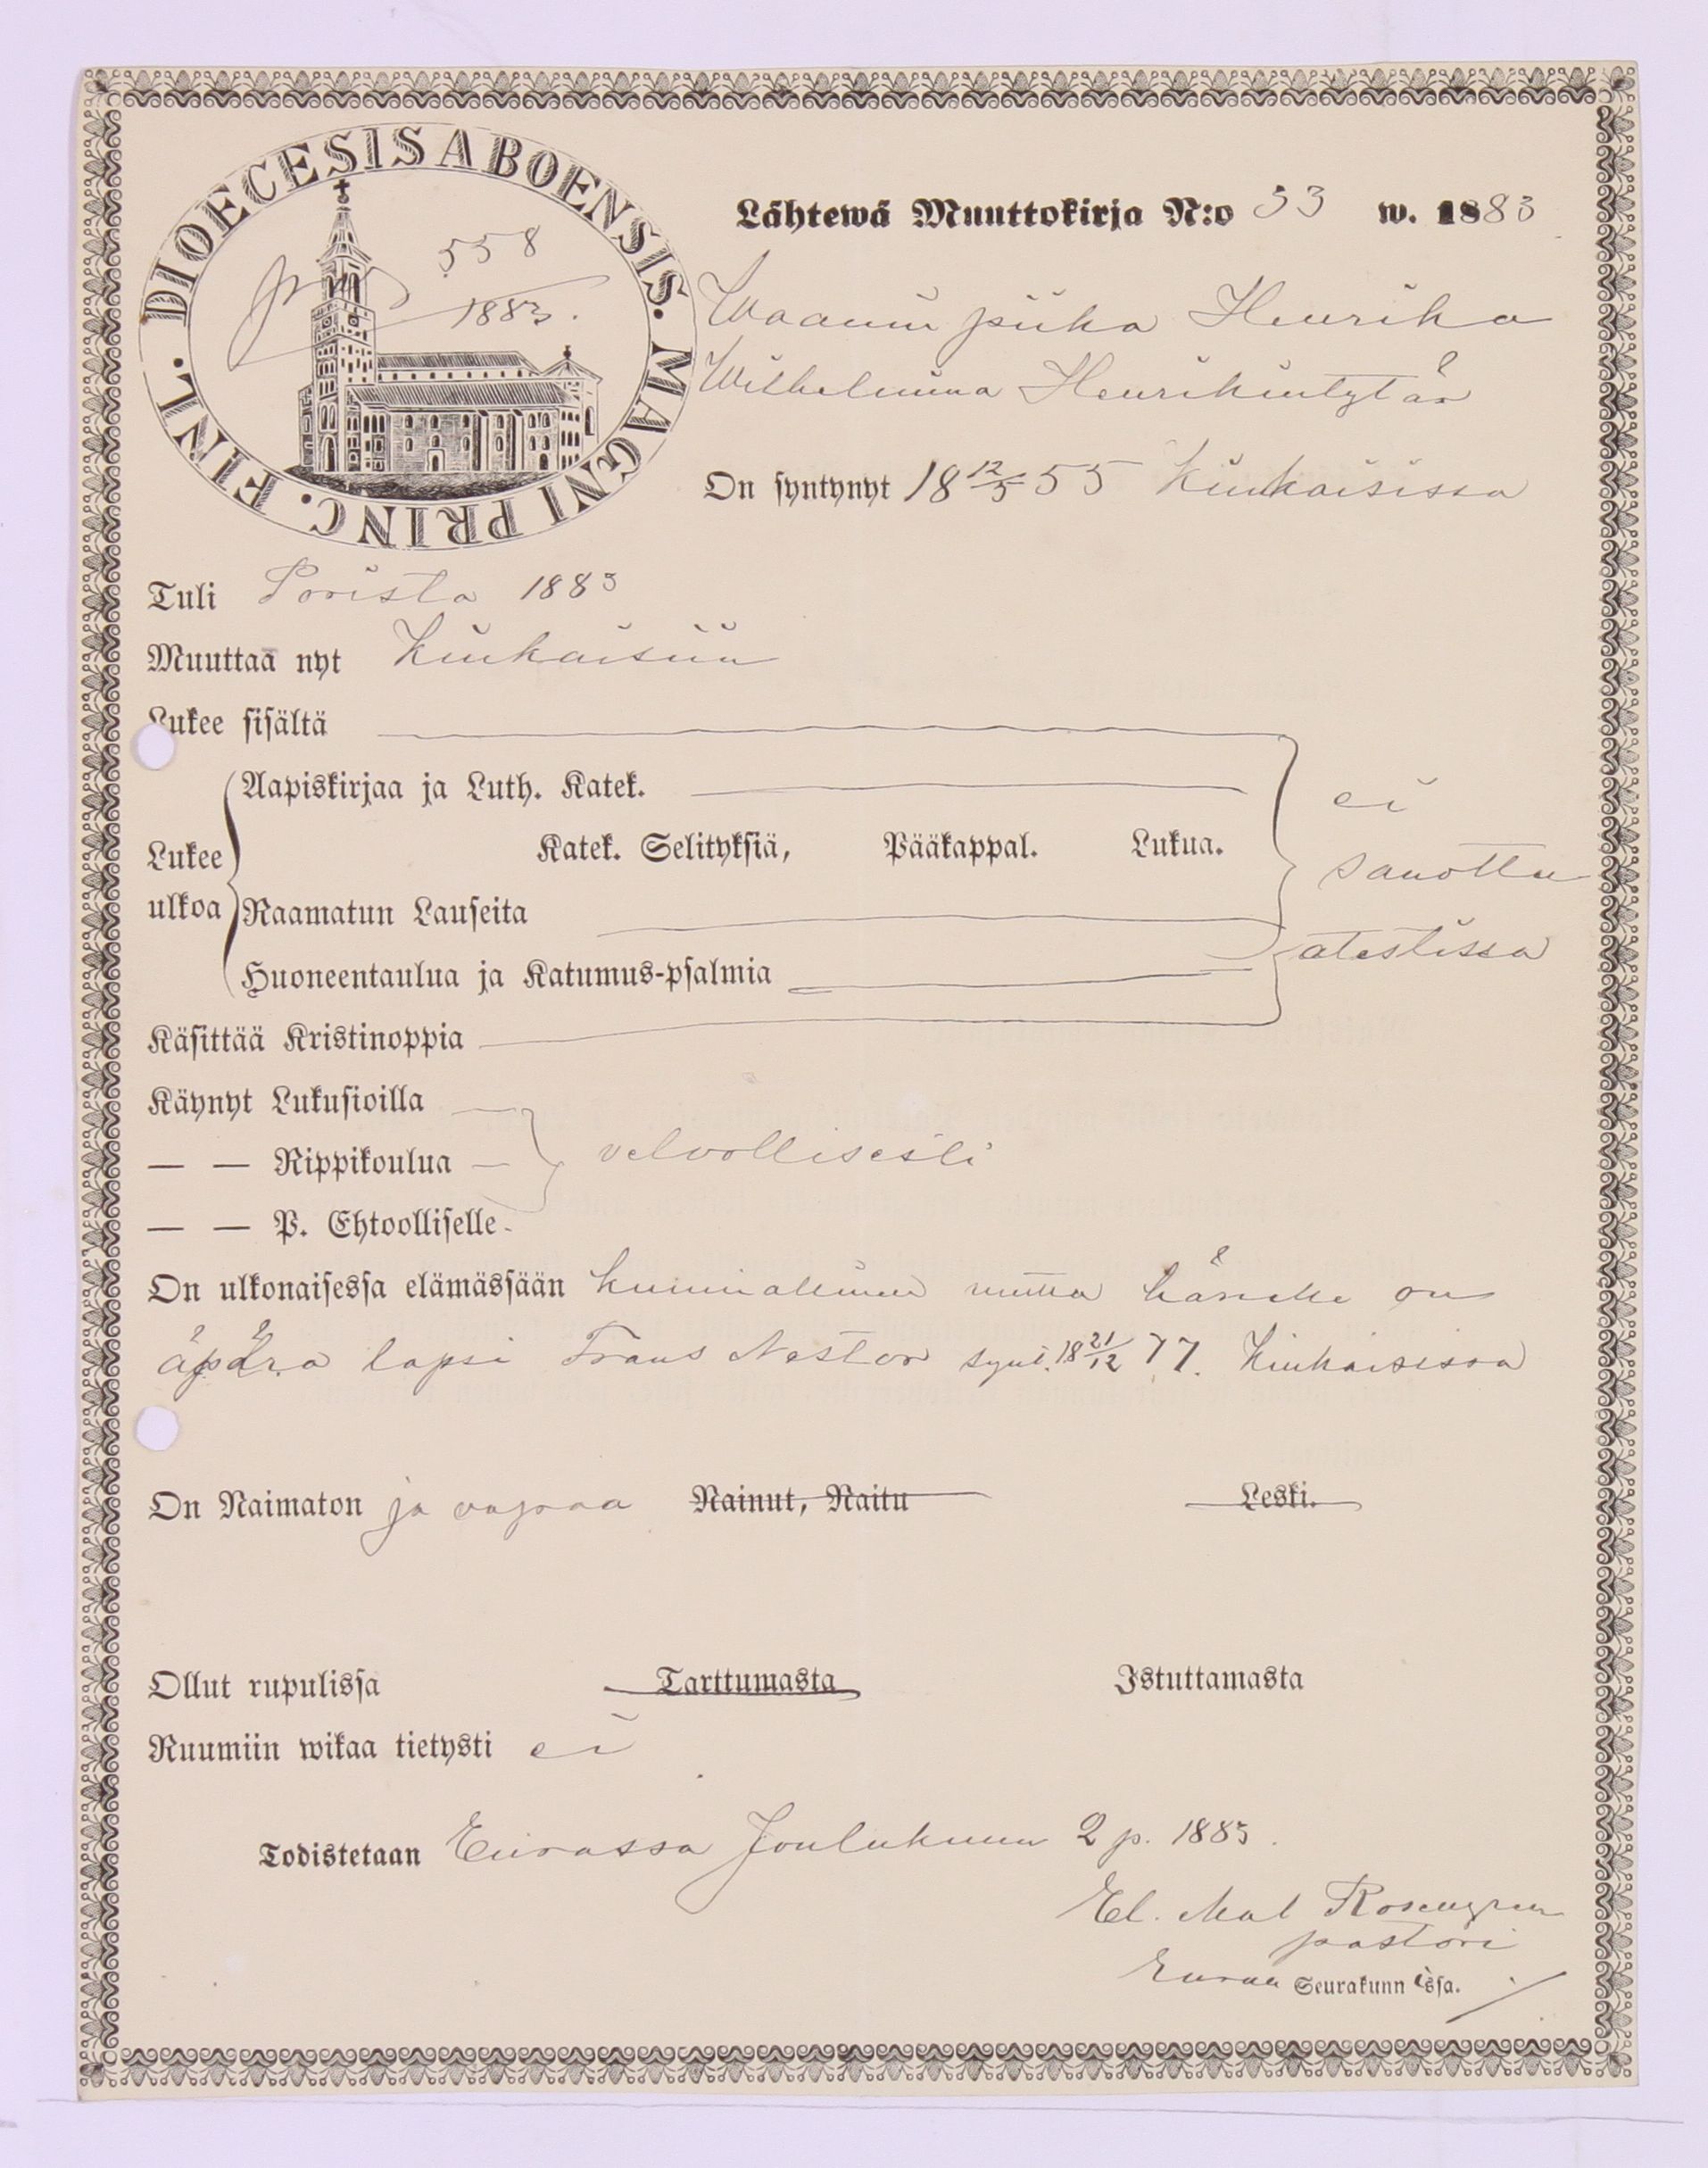 DIOECESIS ABOENSIS. MAGNI PRINC. FINL.
558
1883.
Lähtewä Muuttokirja N:o 53 w. 1883
piika Henrika
Wilhelmina Henrikintytär
On syntynyt 18 12/5 55 Kiukaisissa
Tuli Porista 1883
Muuttaa nyt Kiukaisiin
Lukee sisältä
Aapiskirjaa ja Luth. Katek.
ei
Lukee ulkoa
Katek. Selityksiä, Pääkappal. Lukua.
sanottu
Raamatun Lauseita
atestissa
Huoneentaulua ja Katumus-psalmia
Käsittää Kristinoppia
Käynyt Lukusioilla
— — Rippikoulua
velvollisesti
— — P. Ehtoolliselle
On ulkonaisessa elämässään kunniallinen mutta hänellä on
äpärä lapsi Frans Nestor synt. 18 21/12 77. Kiukaisissa
On Naimaton ja vapaa Nainut, Naitu Leski.
Ollut rupulissa Tarttumasta Istuttamasta
Ruumiin wikaa tietysti ei
Todistetaan Eurassa Joulukuun 2 p. 1883.
El. Mat Rosengren
pastori
Euran Seurakunnissa.